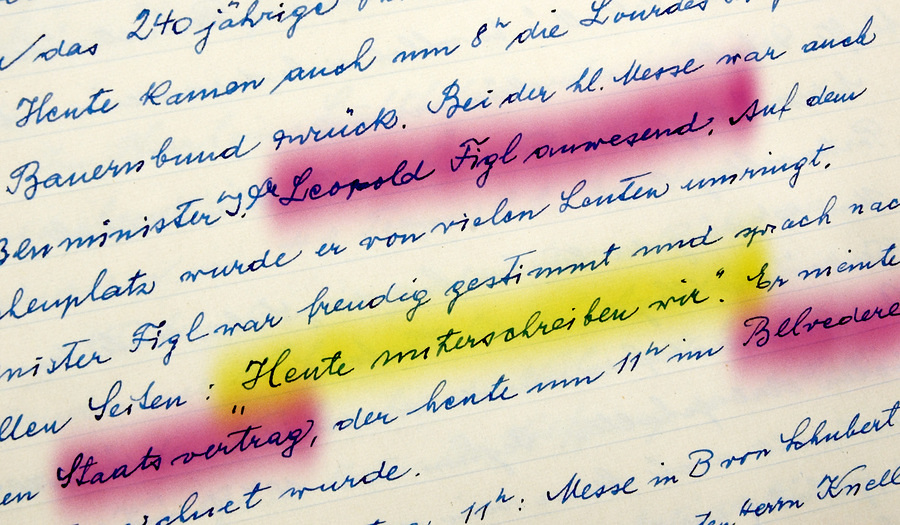 das 240 jährige
Heute kamen auch um 8ʰ die Lourdes
Bauernbund zurück. Bei der hl. Messe war auch
ßenminister Leopold Figl anwesend. Auf dem
henplatz wurde er von vielen Leuten umringt.
nister Figl war freudig gestimmt und sprach nac
llen Seiten: „Heute unterschreiben wir“. Er meinte
en Staatsvertrag, der heute um 11ʰ im Belvedere
ichnet wurde.
11ʰ: Messe in B von Schubert
Herrn Knell